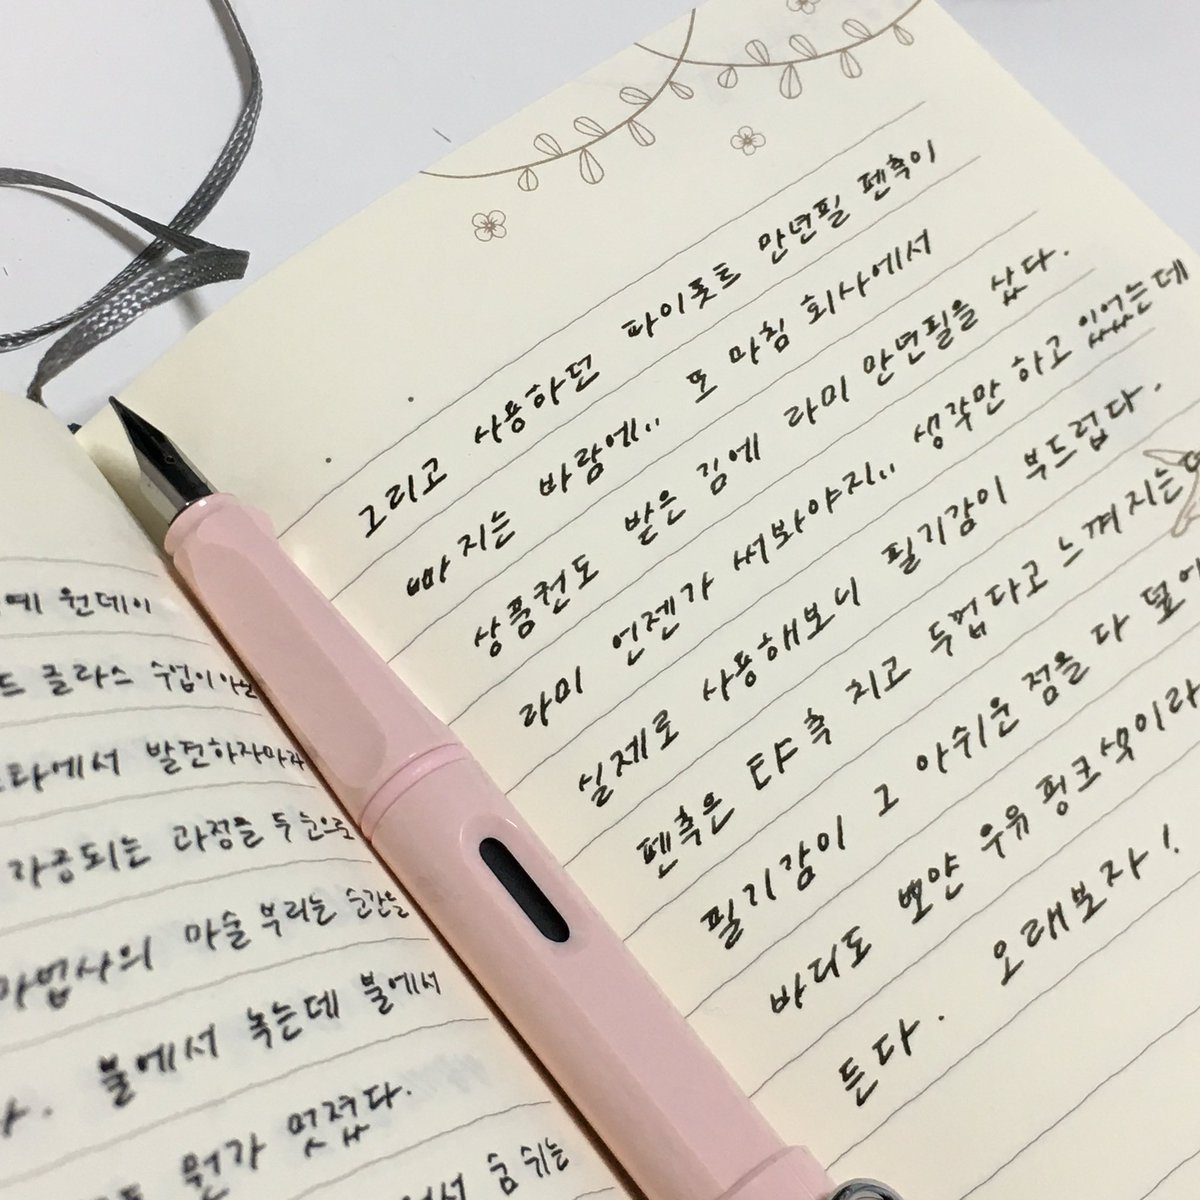 예 원데이
드 클라스 수업이
에서 발견하자마자
가공되는 과정을 두 눈으로
마법사의 마술 부리는 순간을
불에서 녹는데 불에서
뭔가 멋졌다.
숨 쉬는
그리고 사용하던 파이롯트 만년필 펜촉이
빠지는 바람에.. 또 마침 회사에서
상품권도 받은 김에 라미 만년필을 샀다.
라미 언젠가 써봐야지.. 생각만 하고 있었는데
실제로 사용해보니 필기감이 부드럽다.
펜촉은 タト촉 치고 두껍다고 느껴지는데
필기감이 그 아쉬운 점을 다 덮어
바디도 뽀얀 우유 핑크색이라
든다. 오래보자!